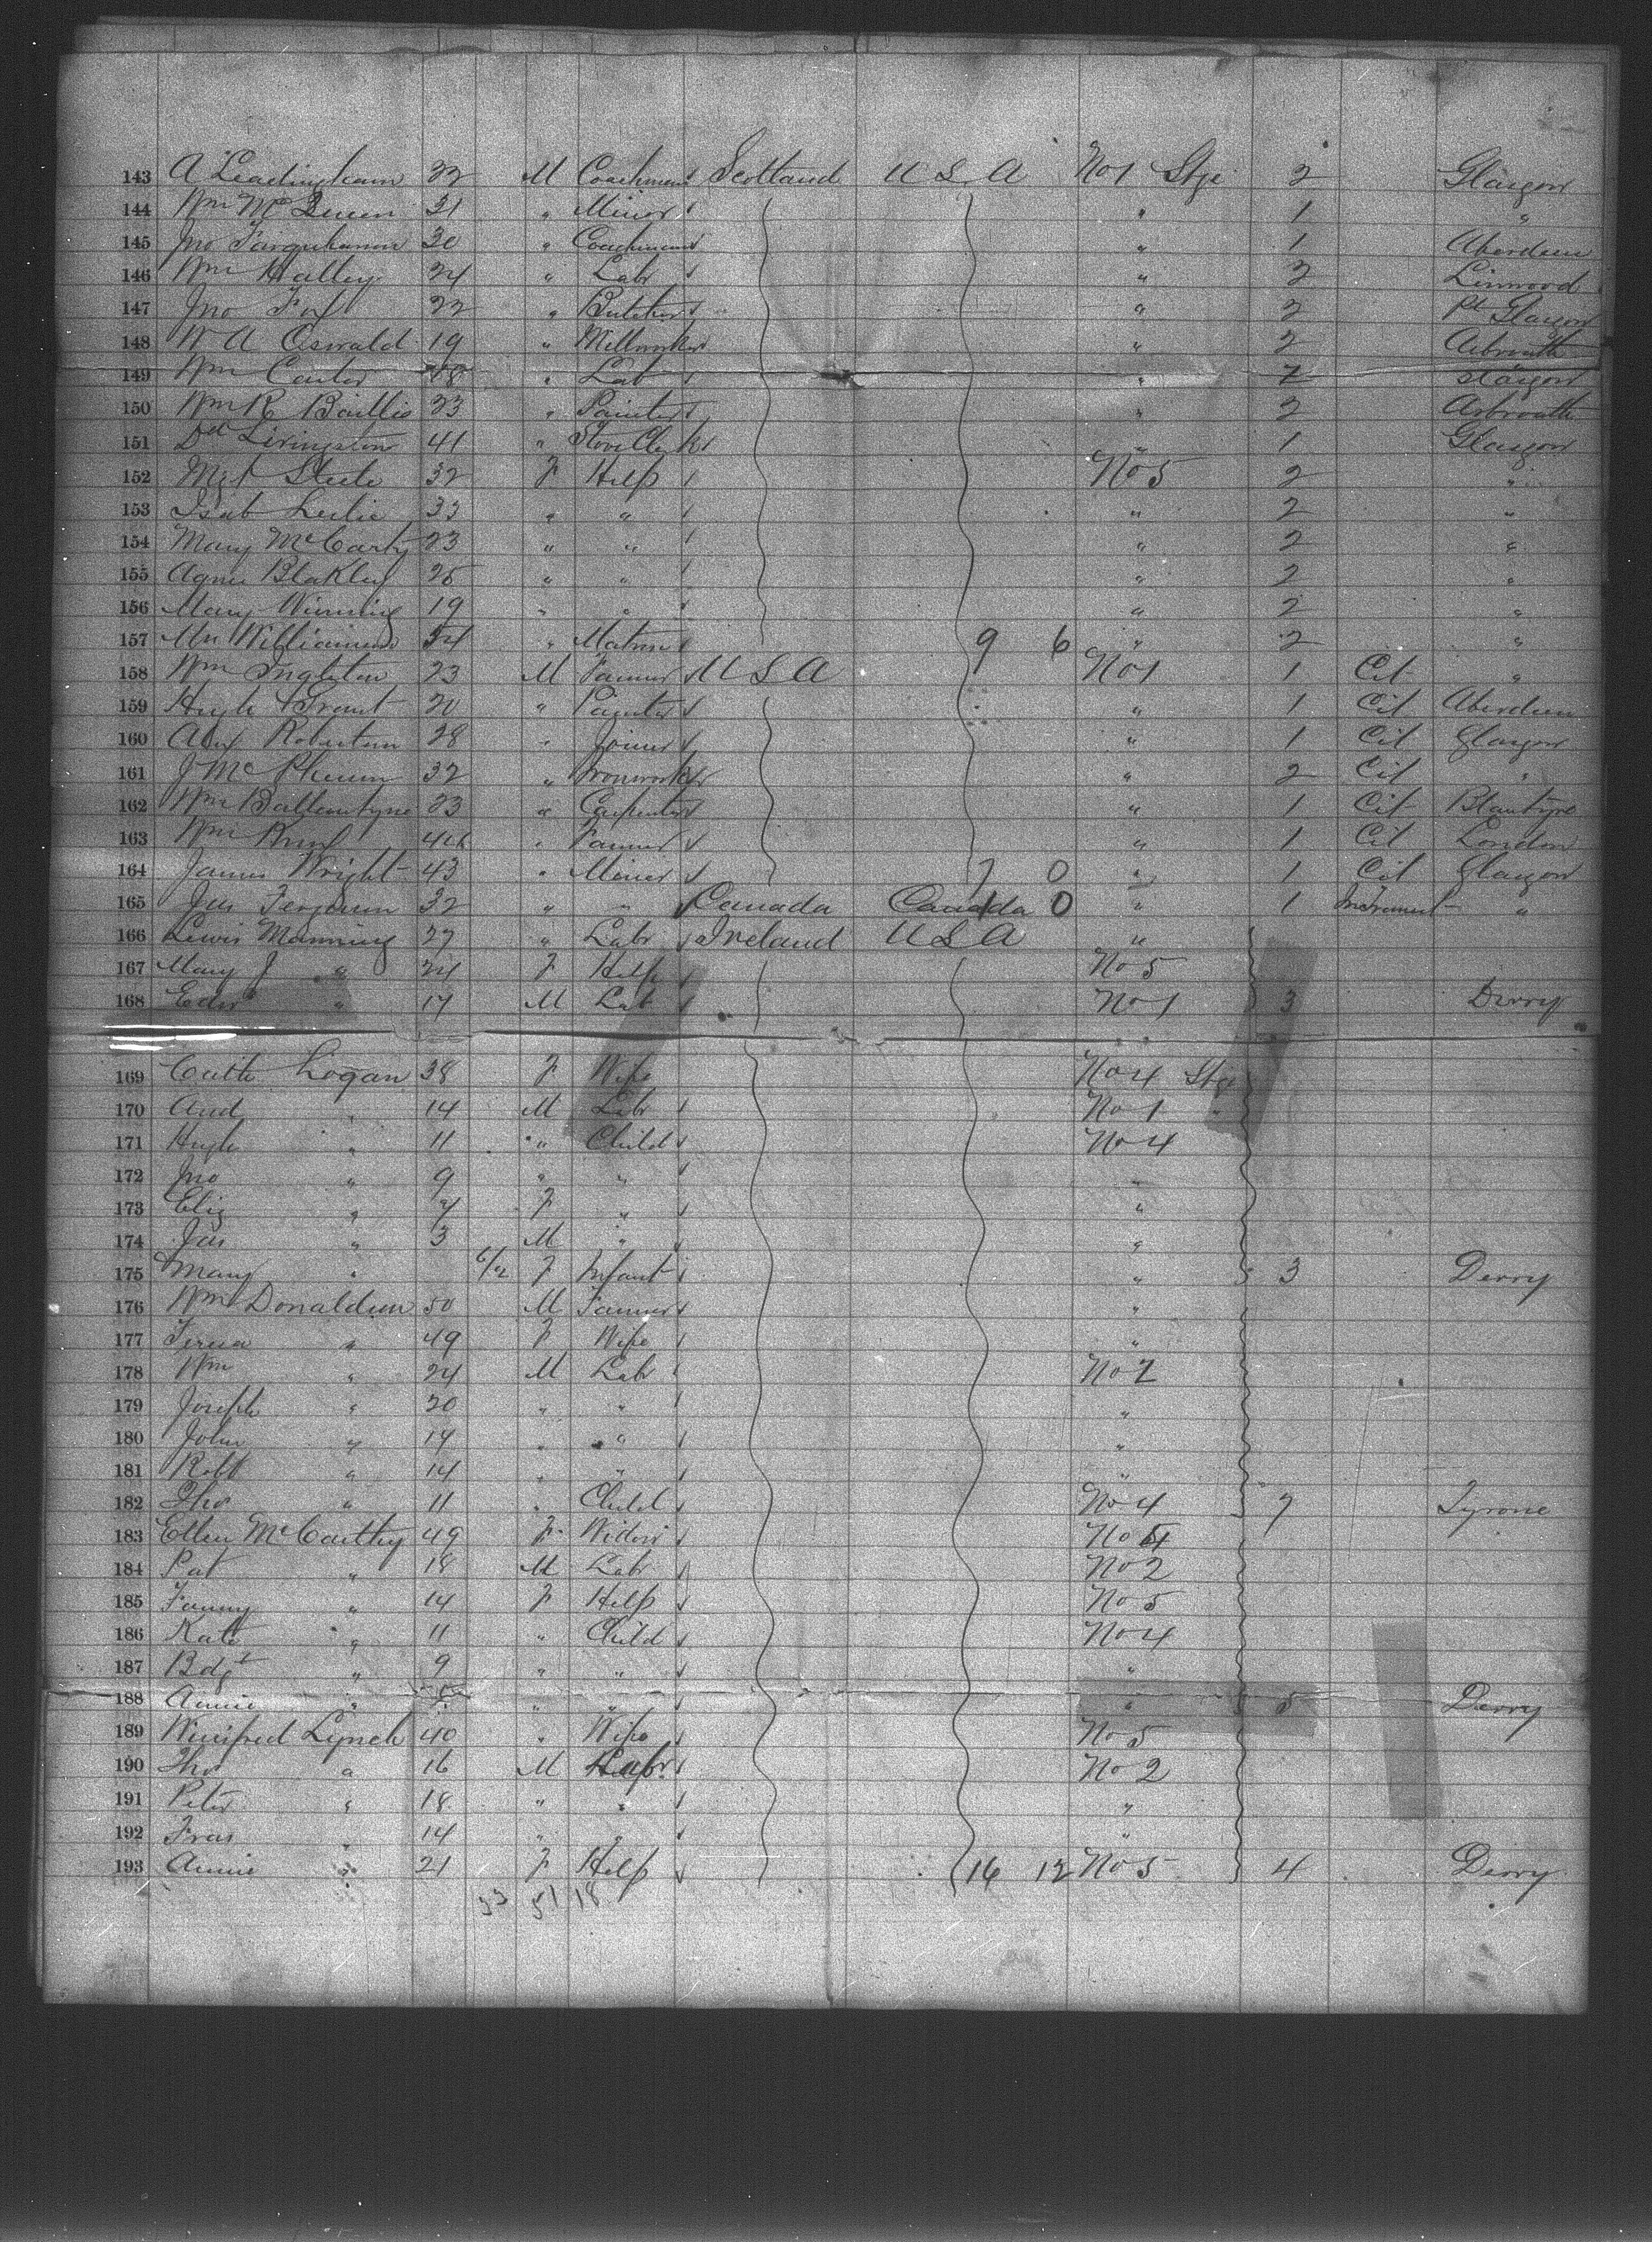 143 A Leadingham 22 M Coachman Scotland U S A No 1 Stge 2 Glasgow
144 Wm McQueen 31 " Minor " 1 "
145 Jno Farquharson 30 " Coachman " 1 Aberdeen
146 Wm Halley 24 " Labr " 2 Linwood
147 Jno Fox 22 " Butcher " 2 Pt Glasgow
148 W A Oswald 19 " Millworker " 2 Arbroath
149 Wm Carter 18 " Lab " 2 Glasgow
150 Wm R Baillie 23 " Painter " 2 Arbroath
151 Dd Livingston 41 " " 1 Glasgow
152 Mgt Steele 32 F Help No 5 2 "
153 Isab Leslie 33 " " " 2 "
154 Mary McCarty 23 " " " 2 "
155 Agnes Blakley 25 " " " 2 "
156 Mary Winning 19 " " " 2 "
157 Williamson 54 " Matron 9 6 " 2 "
158 Wm Ingleton 23 M Farmer U S A No 1 1 Cit "
159 Hugh Grant 20 " Painter " 1 Cit Aberdeen
160 Alex Robertson 28 " Joiner " 1 Cit Glasgow
161 J McPherson 32 " Ironworker " 2 Cit "
162 Wm Ballantyne 23 " Carpenter " 1 Cit Blantyre
163 Wm 44 " Farmer " 1 Cit London
164 James Wright 43 " Minier 7 0 " 1 Cit Glasgow
165 Jas Ferguson 32 " " Canada Canada 0 " 1 "
166 Lewis Manning 27 " Labr Ireland U S A "
167 Mary J " 24 F Help No 5
168 Edwd " 17 M Lab No 1 3 Derry
169 Cath Logan 38 F Wife No 4 Stge
170 And " 14 M Labr No 1 "
171 Hugh " 11 " Child No 4
172 Jno " 9 " " "
173 Eliz " 7 F " "
174 Jas " 3 M " "
175 Mary " 6/12 F Infant " 3 Derry
176 Wm Donaldson 50 M Farmer "
177 Teresa " 49 F Wife "
178 Wm " 24 M Labr No 2
179 Joseph " 20 " " "
180 John " 17 " " "
181 Robt " 14 " " "
182 Tho " 11 " Child No 4 7 Tyrone
183 Ellen McCarthy 49 F Widow No 4
184 Pat " 18 M Labr No 2
185 Fanny " 14 F Help No 5
186 Kate " 11 " Child No 4
187 Bdgt " 9 " " "
188 Annie " " " " 5 Derry
189 Winifred Lynch 40 " Wife No 5
190 Tho " 16 M Labr No 2
191 Peter " 18 " " "
192 Fras " 14 " " "
193 Annie " 21 F Help 16 12 No 5 4 Derry
33 51 18